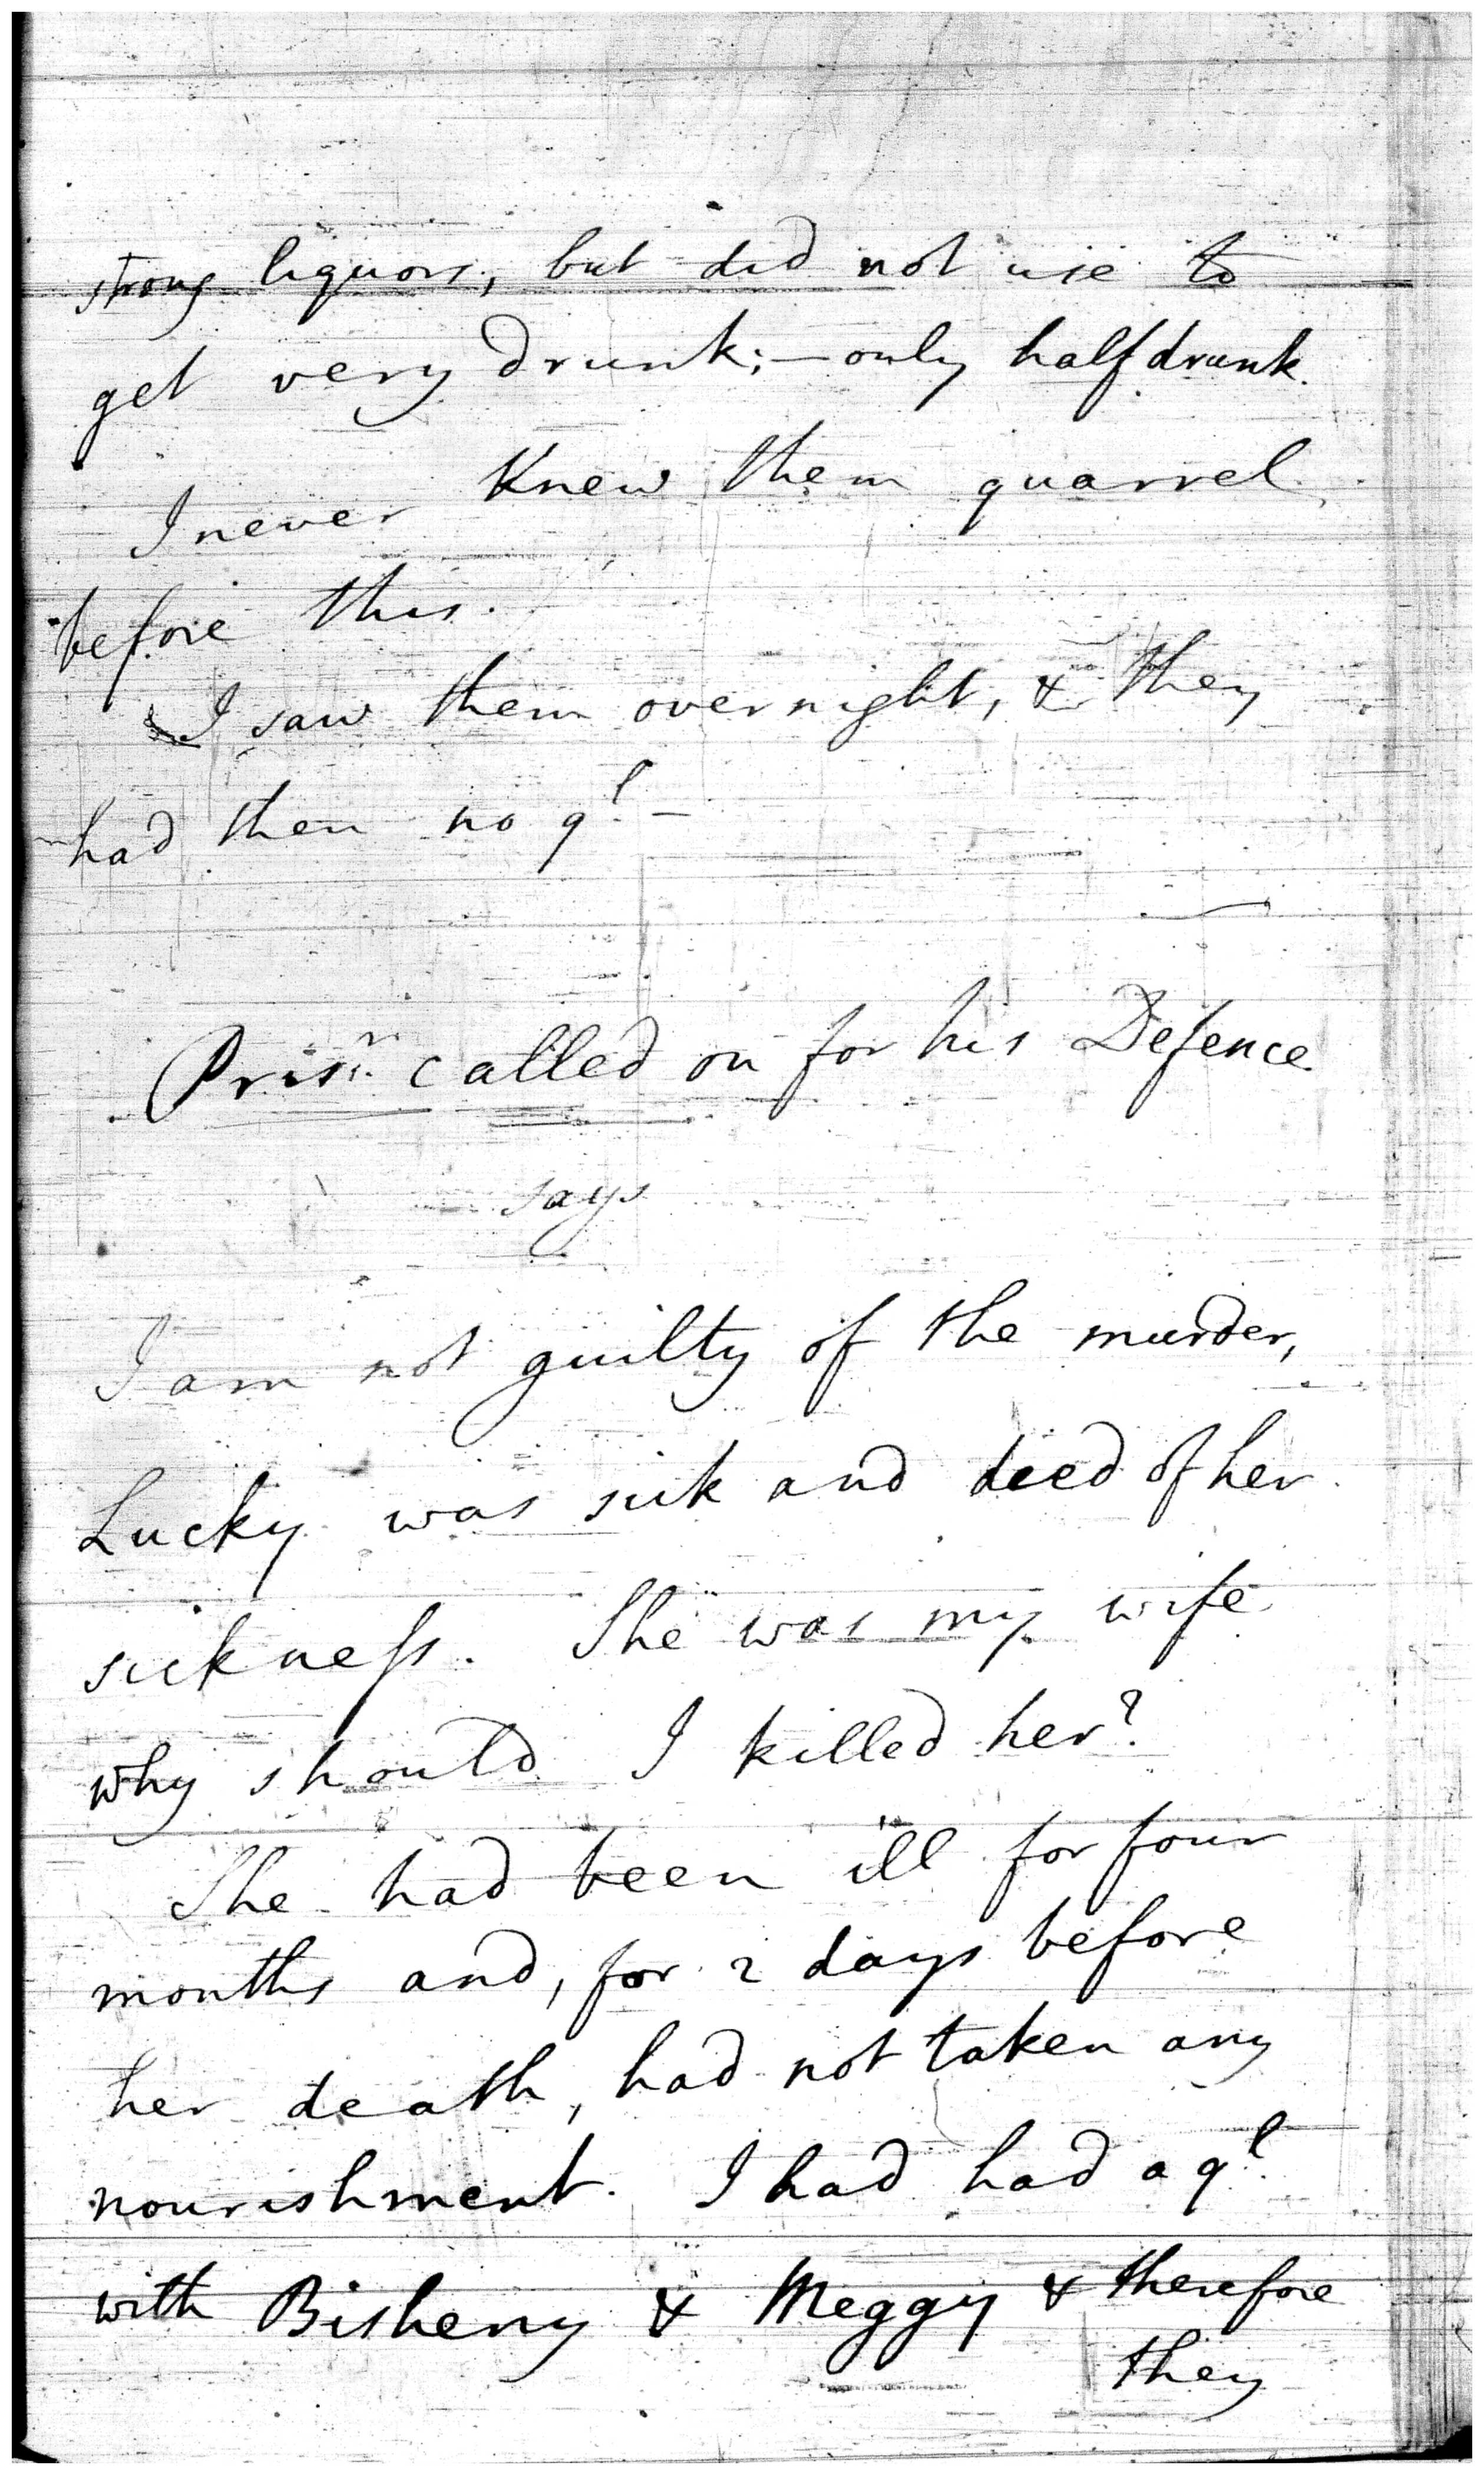 strong liquors, but did not use to
get very drunk; — only half drunk.
I never Knew them quarrel
before this.
I saw them overnight, & they
had then no ql. —
Prisr. called on for his Defence
says
I am not guilty of the murder,
Lucky was sick and died of her
sickness. She was my wife
why should I killed her?
She had been ill for four
months and, for 2 days before
her death, had not taken any
nourishment. I had had a ql.
with Bisheny & Meggy & therefore
they